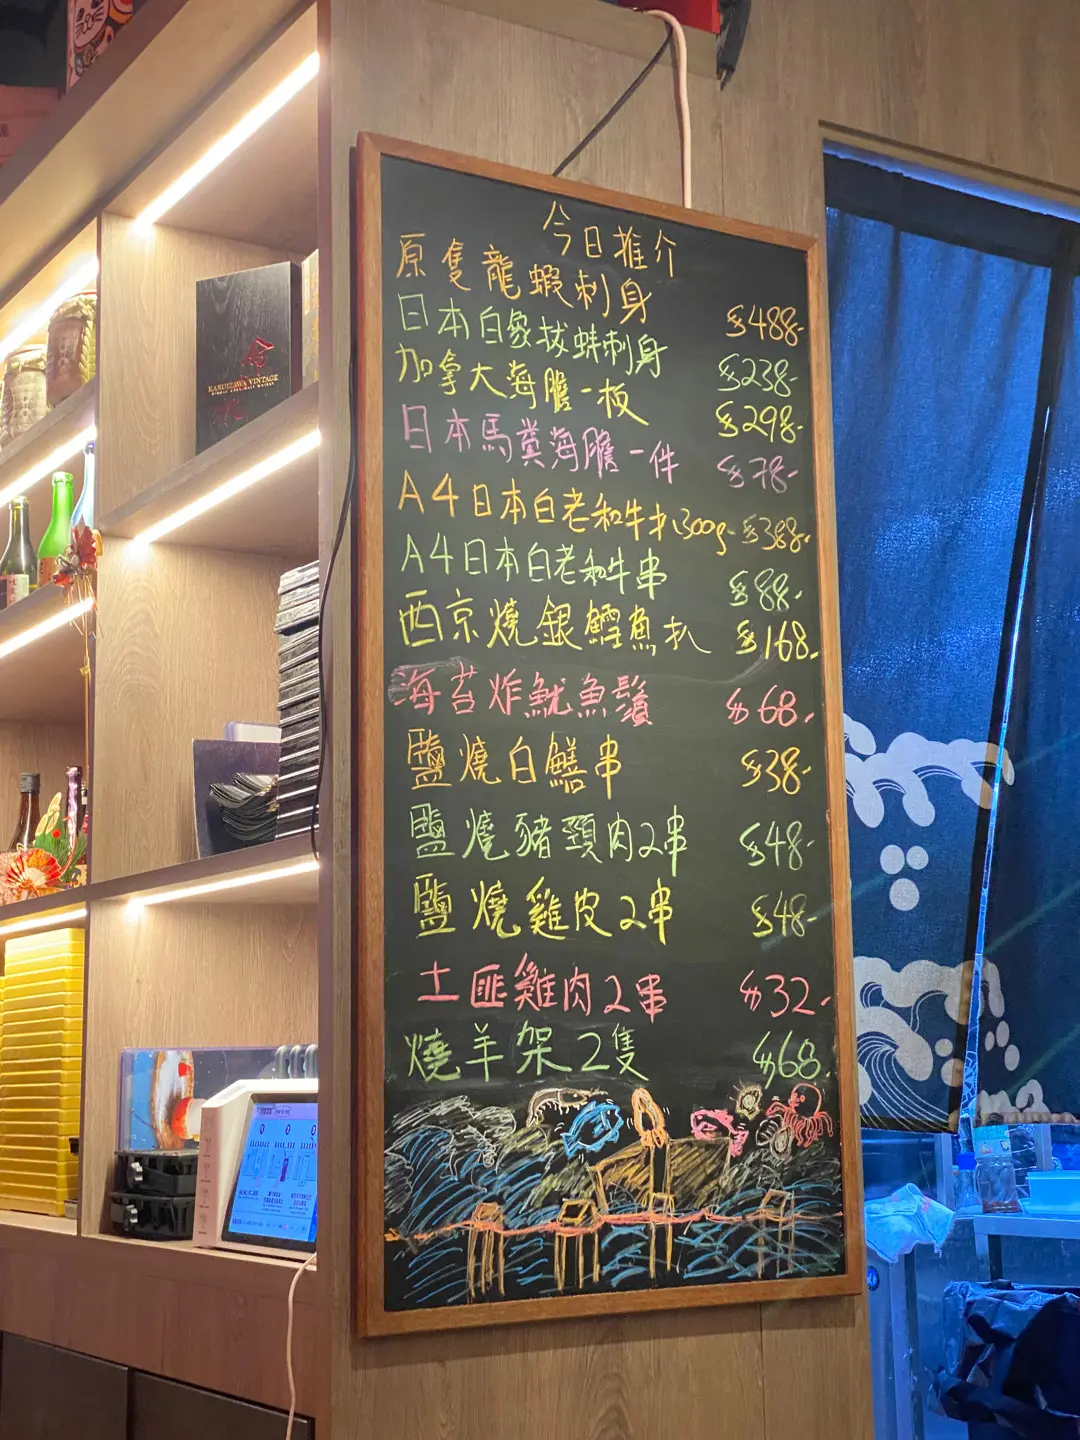 今日推介
原隻龍蝦刺身 $488-
日本白象拔蚌刺身 $238-
加拿大海膽一板 $298-
日本馬糞海膽一件 $78-
A4日本白老和牛扒300g- $388-
A4日本白老和牛串 $88-
西京燒銀鱈魚扒 $168-
海苔炸魷魚鬚 $68-
鹽燒白鱔串 $38-
鹽燒豬頸肉2串 $48-
鹽燒雞皮2串 $48-
土匪雞肉2串 $32-
燒羊架2隻 $68
KARUIZAWA VINTAGE